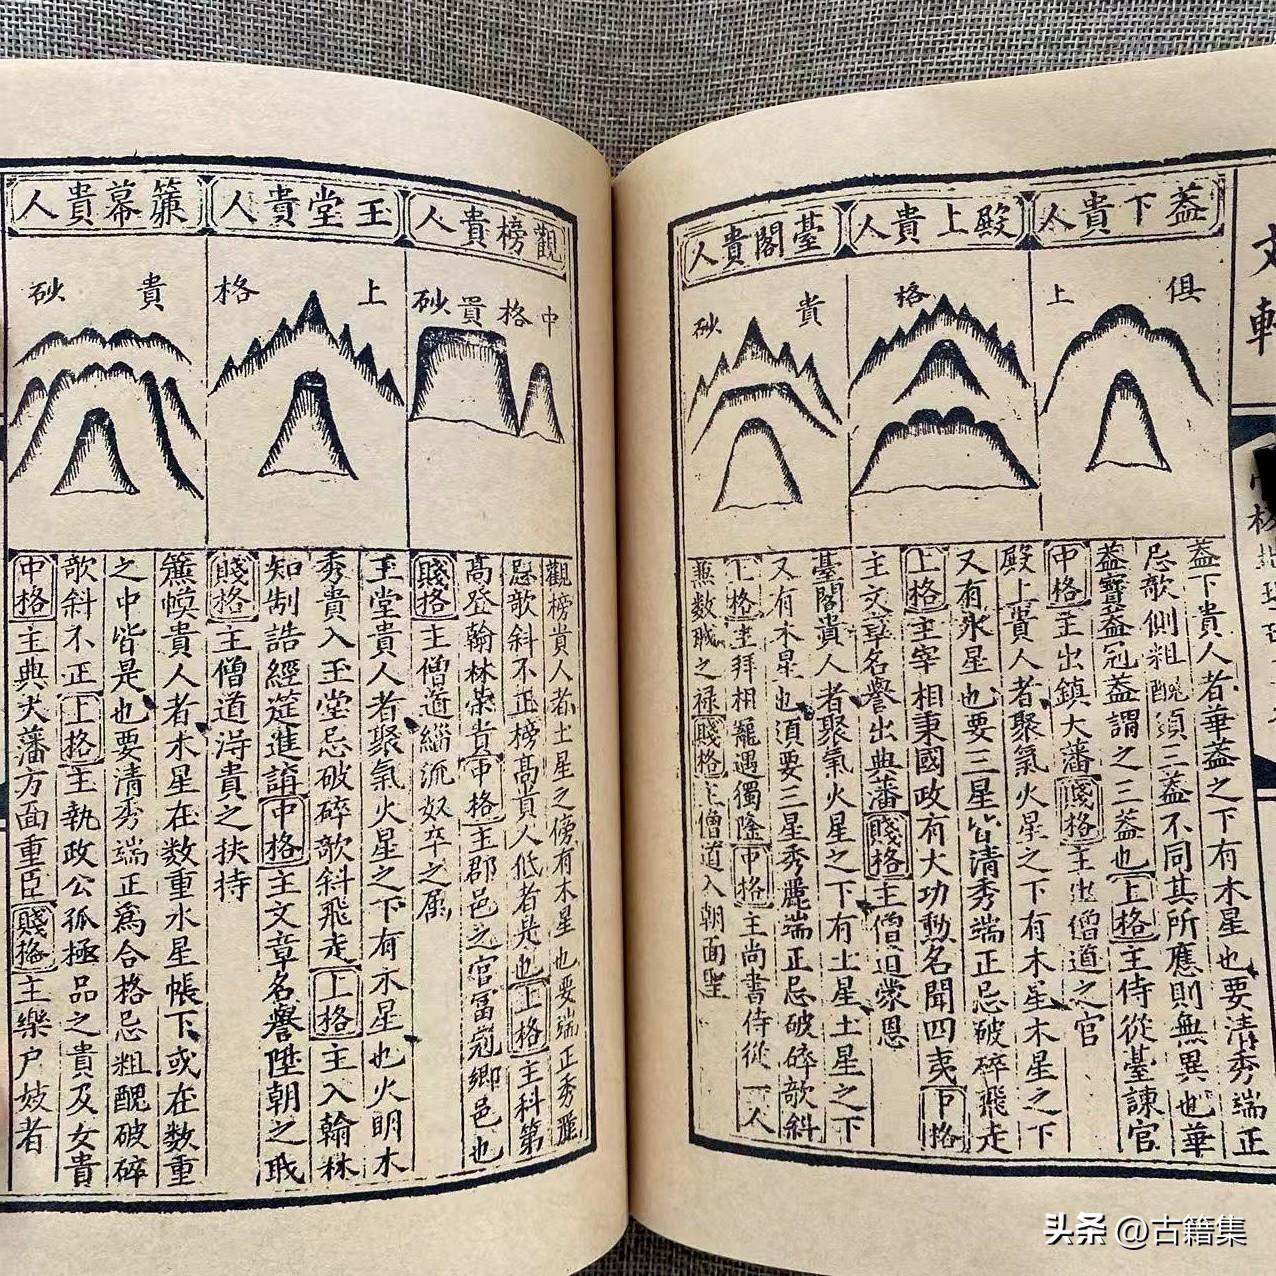 蓋下貴人
殿上貴人
臺閣貴人
俱上
格
貴砂
蓋下貴人者華蓋之下有木星也要清秀端正
忌欹側粗醜須三蓋不同其所應則無異也華
蓋寶蓋冠蓋謂之三蓋也上格主侍從臺諫官
中格主出鎮大藩賤格主出僧道之官
殿上貴人者聚氣火星之下有木星木星之下
又有水星也要三星皆清秀端正忌破碎飛走
上格主宰相秉國政有大功勲名聞四夷中格
主文章名譽出典藩賤格主僧道蒙恩
臺閣貴人者聚氣火星之下有土星土星之下
又有木星也須要三星秀麗端正忌破碎欹斜
上格主拜相寵遇獨隆中格主尚書侍從一人
兼數職之禄賤格主僧道入朝面聖
觀榜貴人
玉堂貴人
簾幕貴人
中格貴砂
上格
貴砂
觀榜貴人者土星之傍有木星也要端正秀麗
忌欹斜不正榜高貴人低者是也上格主科第
高登翰林榮貴中格主郡邑之官富冠鄉邑也
賤格主僧道緇流奴卒之属
玉堂貴人者聚氣火星之下有木星也火明木
秀貴入玉堂忌破碎欹斜飛走上格主入翰林
知制誥經筵進講中格主文章名譽陞朝之職
賤格主僧道淂貴之扶持
簾幙貴人者木星在数重水星帳下或在数重
之中皆是也要清秀端正為合格忌粗醜破碎
欹斜不正上格主執政公孤極品之貴及女貴
中格主典大藩方面重臣賤格主樂户妓者
头条 @古籍集